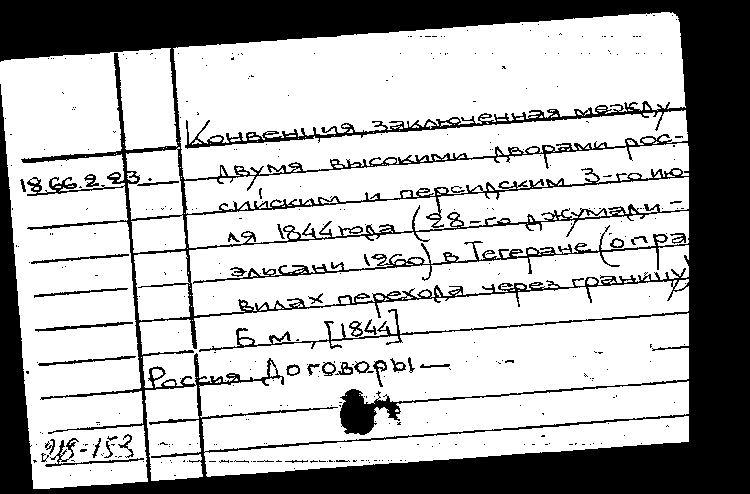 Конвенция, заключенная между
18.66.2.23.
двумя высокими дворами рос-
сийским и персидским 3-го ию-
ля 1844 года (28-го джумади-
эльсани 1260) в Тегеране (о пра
вилах перехода через границу)
Б. м., [1844].
Россия. Договоры —
218-153